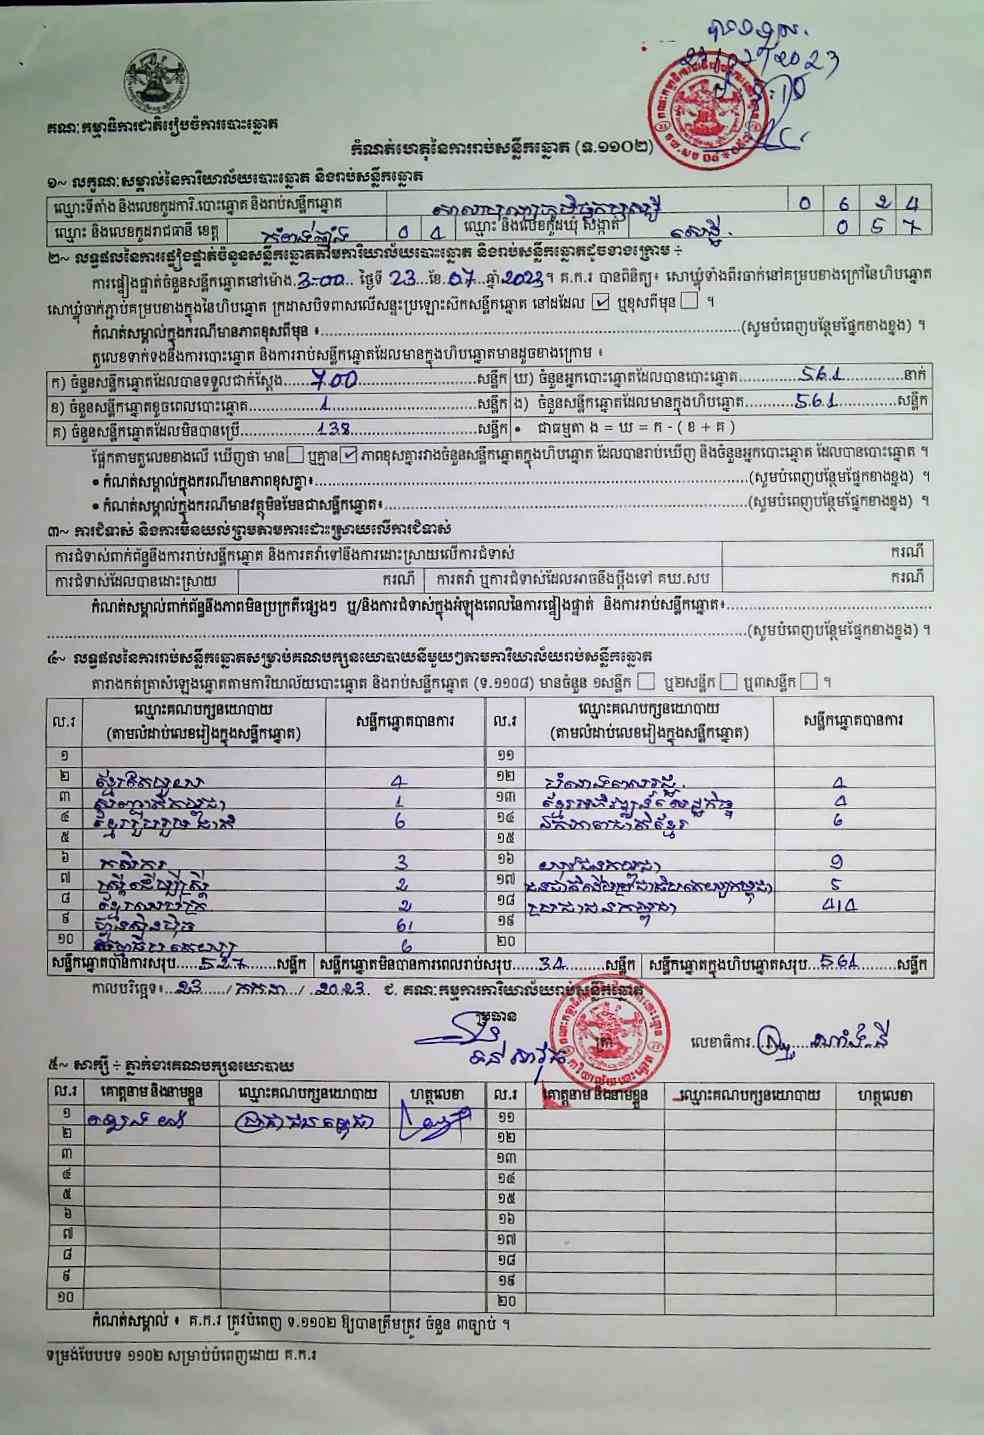 គណៈកម្មាធិការជាតិរៀបចំការបោះឆ្នោត
កំណត់ហេតុនៃការរាប់សន្លឹកឆ្នោត (ទ.១១០២)
១~ លក្ខណៈសម្គាល់នៃការិយាល័យបោះឆ្នោត និងរាប់សន្លឹកឆ្នោត
ឈ្មោះទីតាំង និងលេខកូដការិ.បោះឆ្នោត និងរាប់សន្លឹកឆ្នោត 0 6 2 4
ឈ្មោះ និងលេខកូដរាជធានី ខេត្ត កំពង់ឆ្នាំង 0 4 ឈ្មោះ និងលេខកូដឃុំ សង្កាត់ 0 5 7
២~ លទ្ធផលនៃការផ្ទៀងផ្ទាត់ចំនួនសន្លឹកឆ្នោតតាមការិយាល័យបោះឆ្នោត និងរាប់សន្លឹកឆ្នោតដូចខាងក្រោម ÷
ការផ្ទៀងផ្ទាត់ចំនួនសន្លឹកឆ្នោតនៅម៉ោង.3-00... ថ្ងៃទី 23...ខែ.07...ឆ្នាំ.2023។ គ.ក.រ បានពិនិត្យ៖ សោឃ្មុំទាំងពីរចាក់នៅគម្របខាងក្រៅនៃហិបឆ្នោត
សោឃ្មុំចាក់ភ្ជាប់គម្របខាងក្នុងនៃហិបឆ្នោត ក្រដាសបិទពាសលើសន្ទះប្រឡោះស៊កសន្លឹកឆ្នោត នៅដដែល ☑ ឬខុសពីមុន ☐ ។
កំណត់សម្គាល់ក្នុងករណីមានភាពខុសពីមុន ៖...(សូមបំពេញបន្ថែមផ្នែកខាងខ្នង) ។
តួលេខទាក់ទងនឹងការបោះឆ្នោត និងការរាប់សន្លឹកឆ្នោតដែលមានក្នុងហិបឆ្នោតមានដូចខាងក្រោម ៖
ក) ចំនួនសន្លឹកឆ្នោតដែលបានទទួលជាក់ស្តែង...700...សន្លឹក ឃ) ចំនួនអ្នកបោះឆ្នោតដែលបានបោះឆ្នោត...561...នាក់
ខ) ចំនួនសន្លឹកឆ្នោតខូចពេលបោះឆ្នោត...1...សន្លឹក ង) ចំនួនសន្លឹកឆ្នោតដែលមានក្នុងហិបឆ្នោត...561...សន្លឹក
គ) ចំនួនសន្លឹកឆ្នោតដែលមិនបានប្រើ...138...សន្លឹក • ជាធម្មតា ង = ឃ = ក - ( ខ + គ )
ផ្អែកតាមតួលេខខាងលើ ឃើញថា មាន ☐ ឬគ្មាន ☑ ភាពខុសគ្នារវាងចំនួនសន្លឹកឆ្នោតក្នុងហិបឆ្នោត ដែលបានរាប់ឃើញ និងចំនួនអ្នកបោះឆ្នោត ដែលបានបោះឆ្នោត ។
• កំណត់សម្គាល់ក្នុងករណីមានភាពខុសគ្នា៖...(សូមបំពេញបន្ថែមផ្នែកខាងខ្នង) ។
• កំណត់សម្គាល់ក្នុងករណីមានវត្ថុមិនមែនជាសន្លឹកឆ្នោត៖...(សូមបំពេញបន្ថែមផ្នែកខាងខ្នង) ។
៣~ ការជំទាស់ និងការមិនយល់ព្រមតាមការដោះស្រាយលើការជំទាស់
ការជំទាស់ពាក់ព័ន្ធនឹងការរាប់សន្លឹកឆ្នោត និងការតវ៉ាទៅនឹងការដោះស្រាយលើការជំទាស់ ករណី
ការជំទាស់ដែលបានដោះស្រាយ ករណី ការតវ៉ា ឬការជំទាស់ដែលអាចនឹងប្តឹងទៅ គឃ.សប ករណី
កំណត់សម្គាល់ពាក់ព័ន្ធនឹងភាពមិនប្រក្រតីផ្សេងៗ ឬ/និងការជំទាស់ក្នុងអំឡុងពេលនៃការផ្ទៀងផ្ទាត់ និងការរាប់សន្លឹកឆ្នោត៖...
...(សូមបំពេញបន្ថែមផ្នែកខាងខ្នង) ។
៤~ លទ្ធផលនៃការរាប់សន្លឹកឆ្នោតសម្រាប់គណបក្សនយោបាយនីមួយៗតាមការិយាល័យរាប់សន្លឹកឆ្នោត
តារាងកត់ត្រាសំឡេងឆ្នោតតាមការិយាល័យបោះឆ្នោត និងរាប់សន្លឹកឆ្នោត (ទ.១១០៨) មានចំនួន ១សន្លឹក ☐ ឬ២សន្លឹក ☐ ឬ៣សន្លឹក ☐ ។
ល.រ ឈ្មោះគណបក្សនយោបាយ (តាមលំដាប់លេខរៀងក្នុងសន្លឹកឆ្នោត) សន្លឹកឆ្នោតបានការ ល.រ ឈ្មោះគណបក្សនយោបាយ (តាមលំដាប់លេខរៀងក្នុងសន្លឹកឆ្នោត) សន្លឹកឆ្នោតបានការ
១ ១១
២ ខ្មែរតែមួយ 4 ១២ 4
៣ 1 ១៣ ខ្មែរអភិវឌ្ឍន៍សេដ្ឋកិច្ច 4
៤ ខ្មែររួបរួមជាតិ 6 ១៤ ឯកភាពជាតិខ្មែរ 6
៥ ១៥
៦ កសិករ 3 ១៦ យុវជនកម្ពុជា 9
៧ ស្ត្រីដើម្បីស្ត្រី 2 ១៧ 5
៨ 2 ១៨ ប្រជាជនកម្ពុជា 414
៩ ហ្វ៊ុនស៊ិនប៉ិច 61 ១៩
១០ 6 ២០
សន្លឹកឆ្នោតបានការសរុប...527...សន្លឹក សន្លឹកឆ្នោតមិនបានការពេលរាប់សរុប...34...សន្លឹក សន្លឹកឆ្នោតក្នុងហិបឆ្នោតសរុប...561...សន្លឹក
កាលបរិច្ឆេទ៖..23.../ កក្កដា.../ .2023. ជ. គណៈកម្មការការិយាល័យរាប់សន្លឹកឆ្នោត
ប្រធាន
លេខាធិការ
៥~ សាក្សី ÷ ភ្នាក់ងារគណបក្សនយោបាយ
ល.រ គោត្តនាម និងនាមខ្លួន ឈ្មោះគណបក្សនយោបាយ ហត្ថលេខា ល.រ គោត្តនាម និងនាមខ្លួន ឈ្មោះគណបក្សនយោបាយ ហត្ថលេខា
១ ប្រជាជនកម្ពុជា ១១
២ ១២
៣ ១៣
៤ ១៤
៥ ១៥
៦ ១៦
៧ ១៧
៨ ១៨
៩ ១៩
១០ ២០
កំណត់សម្គាល់ ៖ គ.ក.រ ត្រូវបំពេញ ទ.១១០២ ឱ្យបានត្រឹមត្រូវ ចំនួន ៣ច្បាប់ ។
ទម្រង់បែបបទ ១១០២ សម្រាប់បំពេញដោយ គ.ក.រ